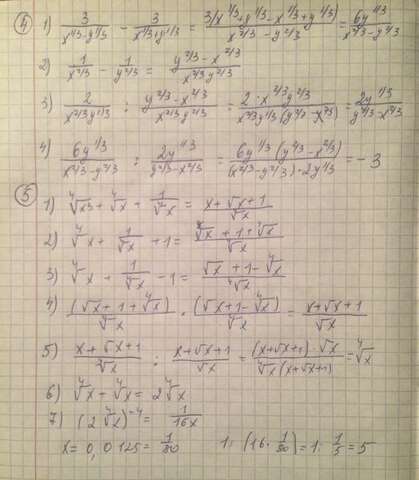 ④ 1) 3/(x^{1/3}-y^{1/3}) - 3/(x^{1/3}+y^{1/3}) = 3(x^{1/3}+y^{1/3}-x^{1/3}+y^{1/3})/(x^{2/3}-y^{2/3}) = 6y^{1/3}/(x^{2/3}-y^{2/3})
2) 1/x^{2/3} - 1/y^{2/3} = (y^{2/3}-x^{2/3})/(x^{2/3}y^{2/3})
3) 2/(x^{2/3}y^{1/3}) : (y^{2/3}-x^{2/3})/(x^{2/3}y^{2/3}) = 2·x^{2/3}y^{2/3}/(x^{2/3}y^{1/3}(y^{2/3}-x^{2/3})) = 2y^{1/3}/(y^{2/3}-x^{2/3})
4) 6y^{1/3}/(x^{2/3}-y^{2/3}) : 2y^{1/3}/(y^{2/3}-x^{2/3}) = 6y^{1/3}(y^{2/3}-x^{2/3})/((x^{2/3}-y^{2/3})·2y^{1/3}) = -3
⑤
1) ∜x³ + ∜x + 1/∜x = (x+√x+1)/∜x
2) ∜x + 1/∜x + 1 = (√x+1+∜x)/∜x
3) ∜x + 1/∜x - 1 = (√x+1-∜x)/∜x
4) (√x+1+∜x)/∜x · (√x+1-∜x)/∜x = (x+√x+1)/√x
5) (x+√x+1)/∜x : (x+√x+1)/√x = (x+√x+1)·√x/(∜x(x+√x+1)) = ∜x
6) ∜x + ∜x = 2∜x
7) (2∜x)^{-4} = 1/16x
x = 0,0125 = 1/80 1:(16·1/80) = 1:1/5 = 5